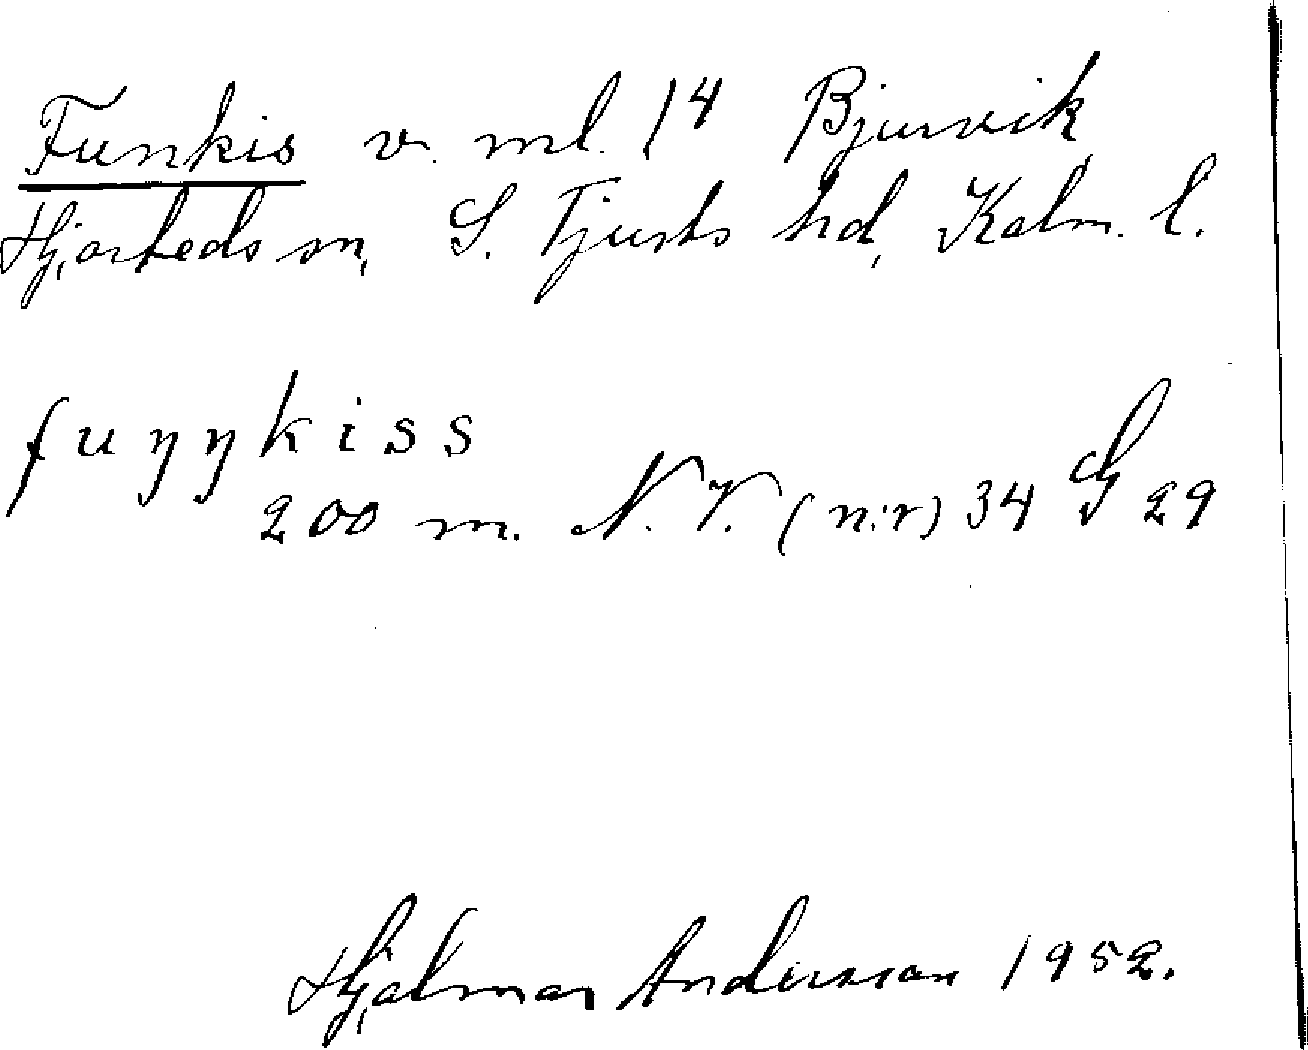 Funkis v. ml. 14 Bjurvik
Hjorteds sn, S. Tjusts hd, Kalm. l.
fuŋŋkiss
200 m. N.V. (n:r) 34 G 29
Hjalmar Andersson 1952.